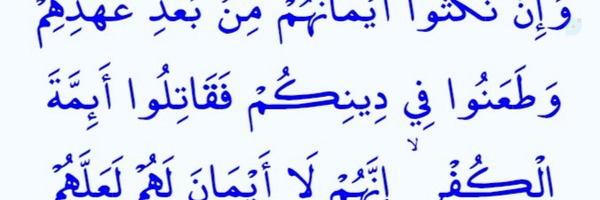 وَإِن نَّكَثُوا أَيْمَانَهُمْ مِنْ بَعْدِ عَهْدِهِمْ
وَطَعَنُوا فِي دِينِكُمْ فَقَاتِلُوا أَئِمَّةَ
الْكُفْرِ ۙ إِنَّهُمْ لَا أَيْمَانَ لَهُمْ لَعَلَّهُمْ